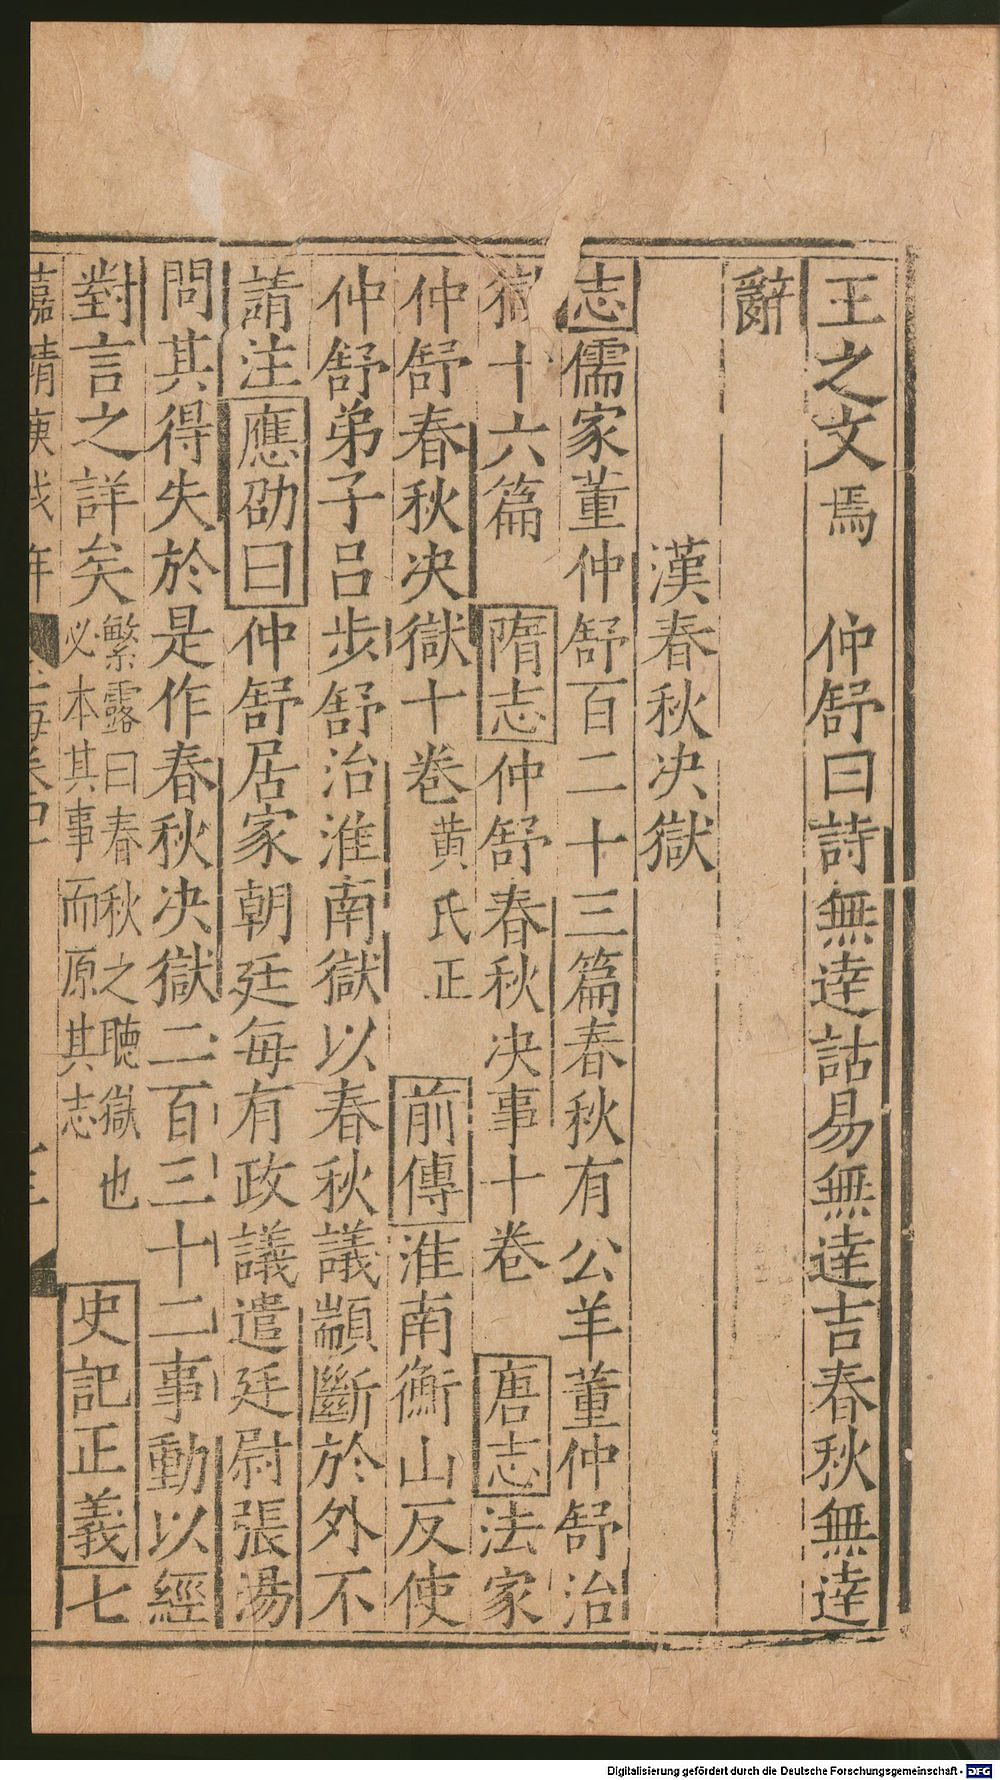 王之文焉　仲舒曰詩無達詁易無達吉春秋無達
辭
漢春秋決獄
志儒家董仲舒百二十三篇春秋有公羊董仲舒治
獄十六篇　隋志仲舒春秋決事十卷　唐志法家
仲舒春秋決獄十卷黄氏正　前傳淮南衡山反使
仲舒弟子吕步舒治淮南獄以春秋議顓斷於外不
請注應劭曰仲舒居家朝廷每有政議遣廷尉張湯
問其得失於是作春秋決獄二百三十二事動以經
對言之詳矣繁露曰春秋之聽獄也必本其事而原其志　史記正義七
嘉靖庚戌年
Digitalisierung gefördert durch die Deutsche Forschungsgemeinschaft - DFG